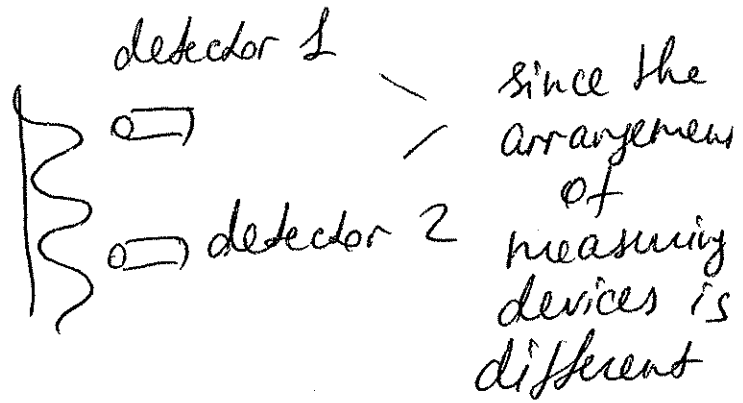 detector 1
detector 2
since the
arrangemen
of
measuring
devices is
different